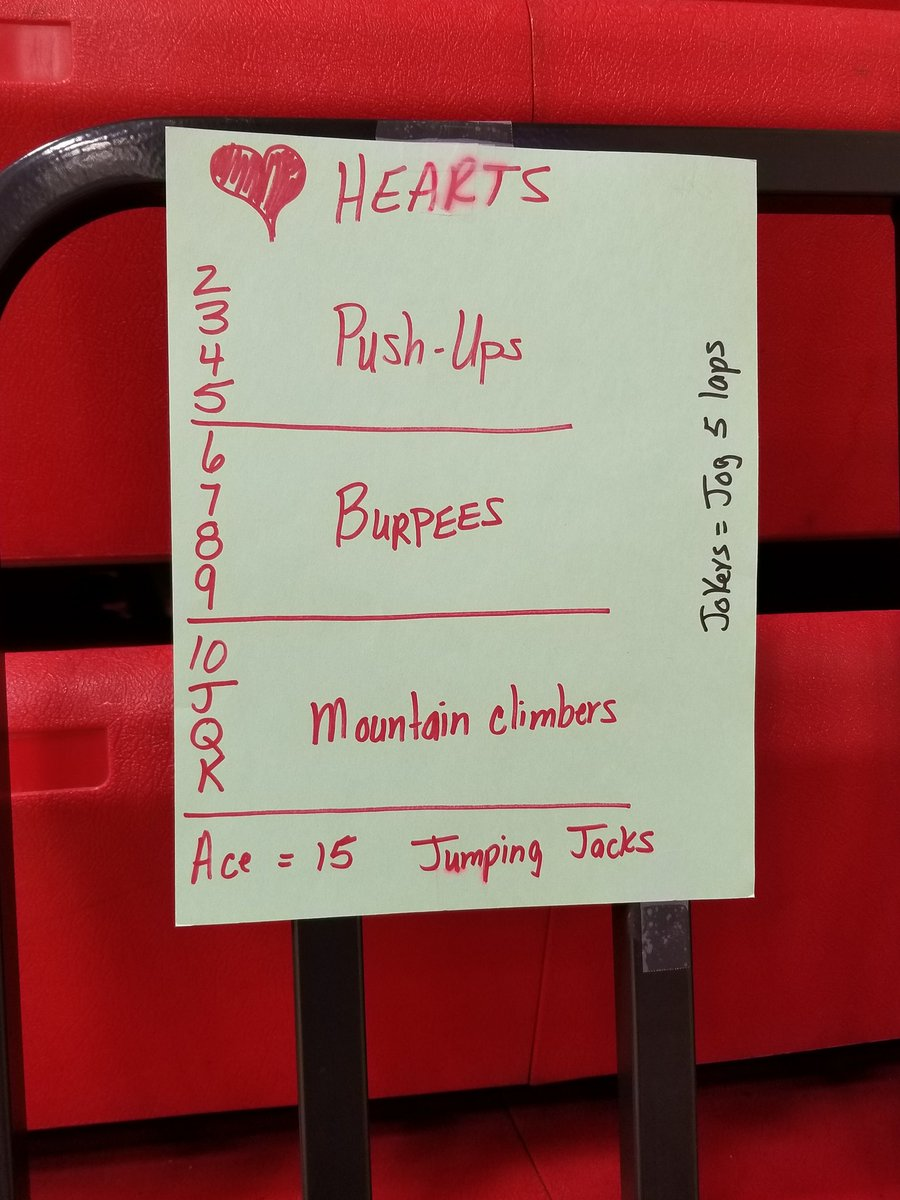 HEARTS
2
3
4
5
Push-Ups
6
7
8
9
BURPEES
10
J
Q
K
Mountain climbers
Ace = 15 Jumping Jacks
Jokers = Jog 5 laps